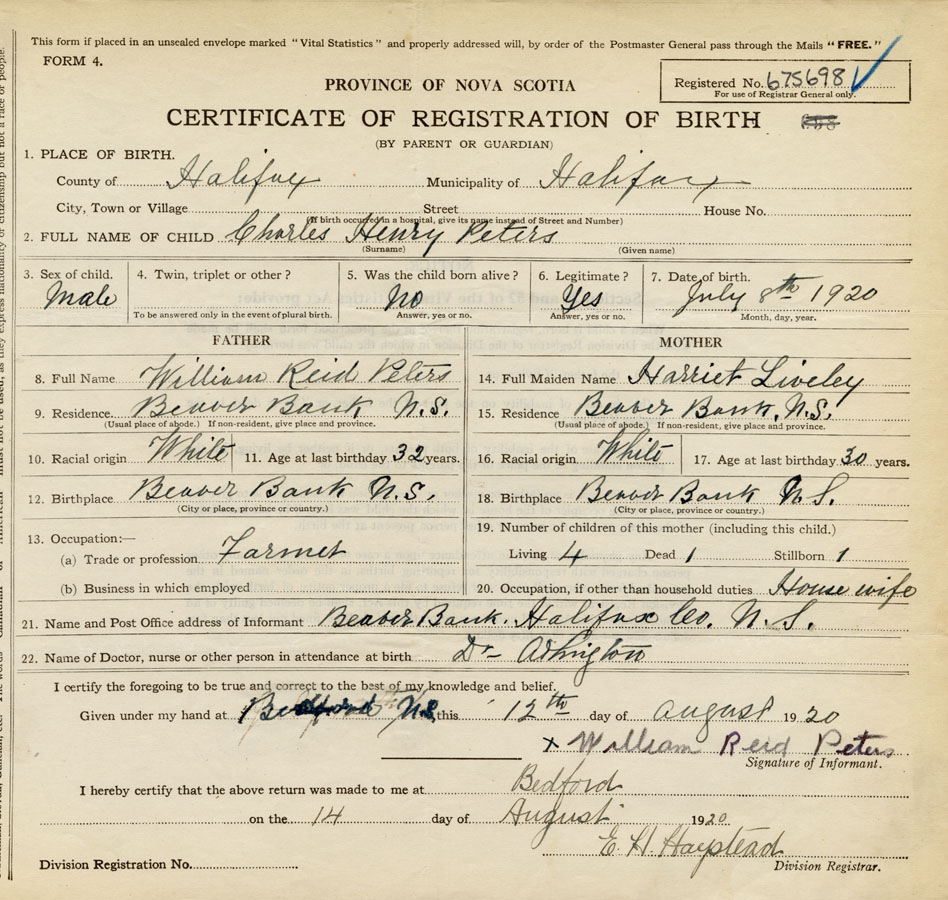 This form if placed in an unsealed envelope marked "Vital Statistics" and properly addressed will, by order of the Postmaster General pass through the Mails "FREE."
FORM 4.
Registered No. 675698
For use of Registrar General only.
PROVINCE OF NOVA SCOTIA
CERTIFICATE OF REGISTRATION OF BIRTH
(BY PARENT OR GUARDIAN)
1. PLACE OF BIRTH.
County of Halifax Municipality of Halifax
City, Town or Village Street House No.
(If birth occurred in a hospital, give its name instead of Street and Number)
2. FULL NAME OF CHILD Charles Henry Peters
(Surname) (Given name)
3. Sex of child. 4. Twin, triplet or other? 5. Was the child born alive? 6. Legitimate? 7. Date of birth.
Male No Yes July 8th 1920
To be answered only in the event of plural birth. Answer, yes or no. Answer, yes or no. Month, day, year.
FATHER
8. Full Name William Reid Peters
9. Residence. Beaver Bank N.S.
(Usual place of abode.) If non-resident, give place and province.
10. Racial origin White 11. Age at last birthday 32 years.
12. Birthplace Beaver Bank N.S.
(City or place, province or country.)
13. Occupation:—
(a) Trade or profession Farmer
(b) Business in which employed
MOTHER
14. Full Maiden Name Harriet Liveley
15. Residence Beaver Bank. N.S.
(Usual place of abode.) If non-resident, give place and province.
16. Racial origin White 17. Age at last birthday 30 years.
18. Birthplace Beaver Bank N.S.
(City or place, province or country.)
19. Number of children of this mother (including this child.)
Living 4 Dead 1 Stillborn 1
20. Occupation, if other than household duties House wife
21. Name and Post Office address of Informant Beaver Bank. Halifax Co. N.S.
22. Name of Doctor, nurse or other person in attendance at birth Dr
I certify the foregoing to be true and correct to the best of my knowledge and belief.
Given under my hand at Bedford N.S. this 12th day of August 1920
x William Reid Peters
Signature of Informant.
I hereby certify that the above return was made to me at Bedford
on the 14 day of August 1920
E. H. Haystead
Division Registration No. Division Registrar.